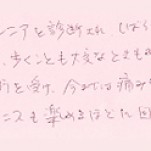 ニアを診断され、しばら
、歩くことも大変なときもあ
術を受け、今では痛み
ニスも楽しめるほどに回